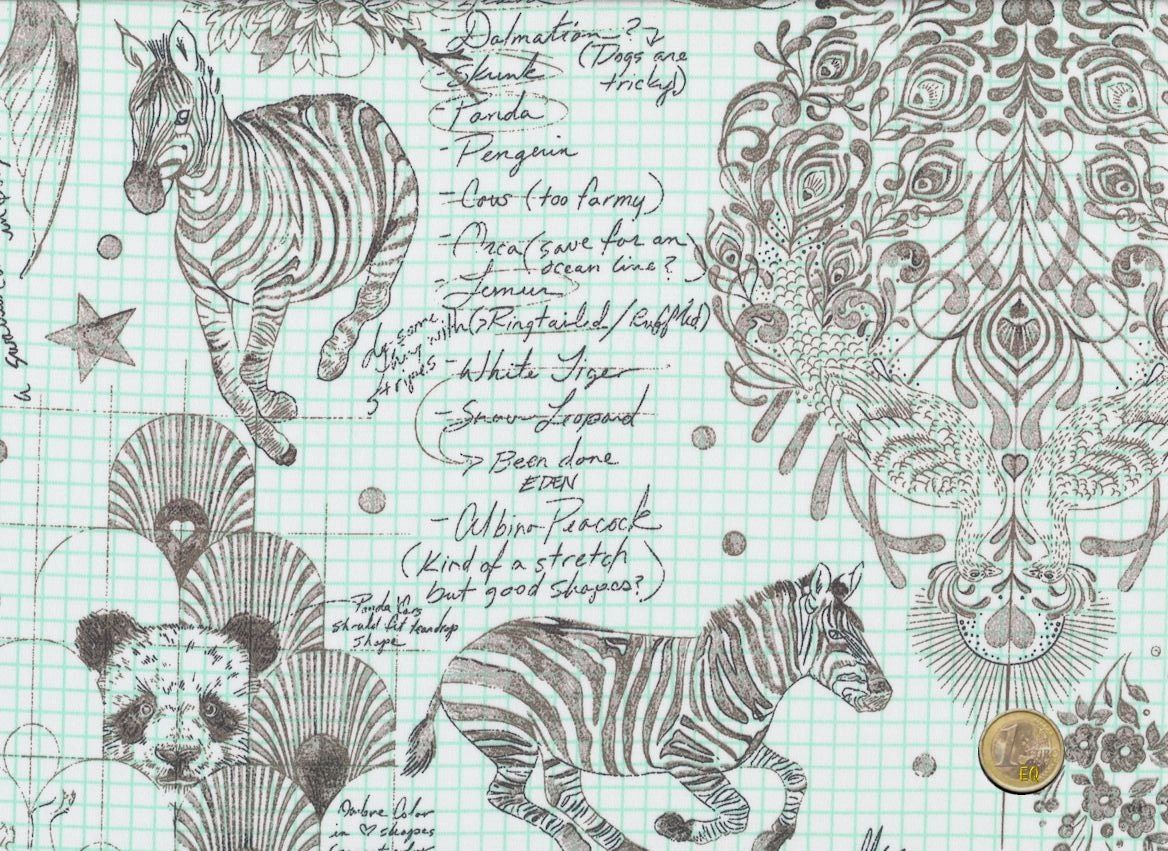 - Dalmation?
(Dogs are
tricky)
- Skunk
Panda
- Pengerin
- Cows (too farmy)
- Orca (save for an
ocean line?)
- Lemur
(> Ringtailed / Ruffled)
do some
thing with
stripes
- White Tiger
- Snow Leopard
> Been done
EDEN
- Albino Peacock
(Kind of a stretch
but good shapes?)
Panda Ears
should fit teardrop
shape
Ombre Color
in ♡ shapes
1
EQ